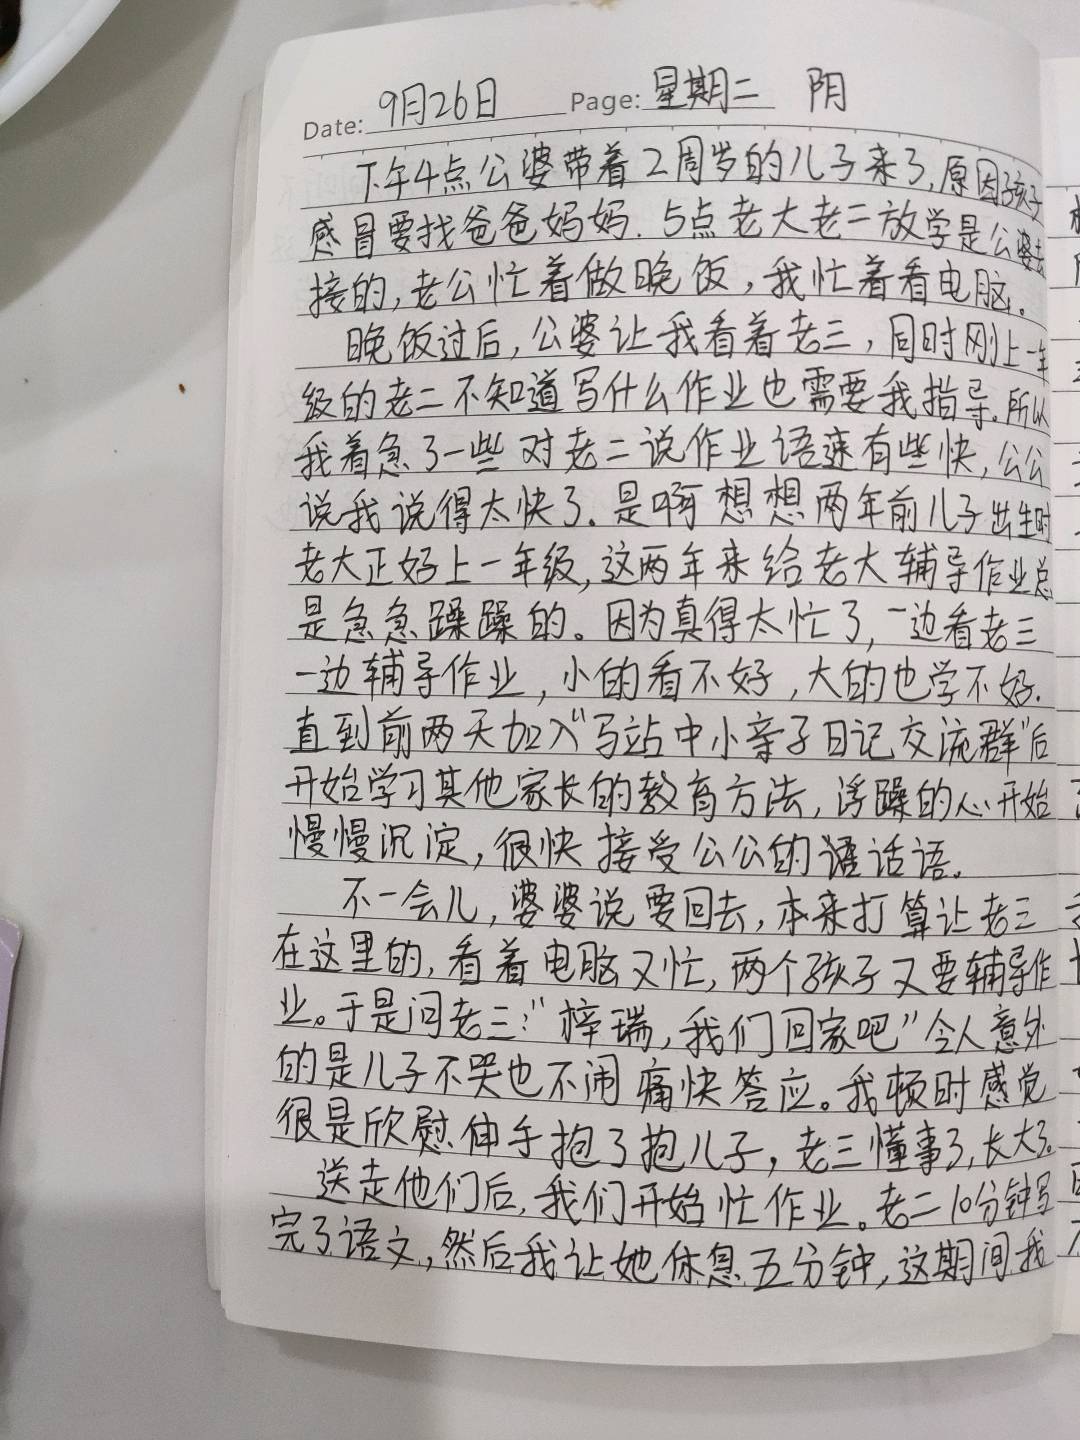 Date: 9月26日 Page: 星期二 阴
下午4点公婆带着2周岁的儿子来了,原因孩子
感冒要找爸爸妈妈. 5点老大老二放学是公婆去
接的,老公忙着做晚饭,我忙着看电脑。
晚饭过后,公婆让我看着老三,同时刚上一年
级的老二不知道写什么作业也需要我指导。所以
我着急了一些对老二说作业语速有些快,公公
说我说得太快了.是啊想想两年前儿子出生时
老大正好上一年级,这两年来给老大辅导作业总
是急急躁躁的。因为真得太忙了,一边看老三
一边辅导作业,小的看不好,大的也学不好.
直到前两天加入“马站中小亲子日记交流群”后
开始学习其他家长的教育方法,浮躁的心开始
慢慢沉淀,很快接受公公的话语。
不一会儿,婆婆说要回去,本来打算让老三
在这里的,看着电脑又忙,两个孩子又要辅导作
业。于是问老三:“梓瑞,我们回家吧”令人意外
的是儿子不哭也不闹痛快答应。我顿时感觉
很是欣慰伸手抱了抱儿子,老三懂事了,长大了.
送走他们后,我们开始忙作业。老二10分钟写
完了语文,然后我让她休息五分钟,这期间我